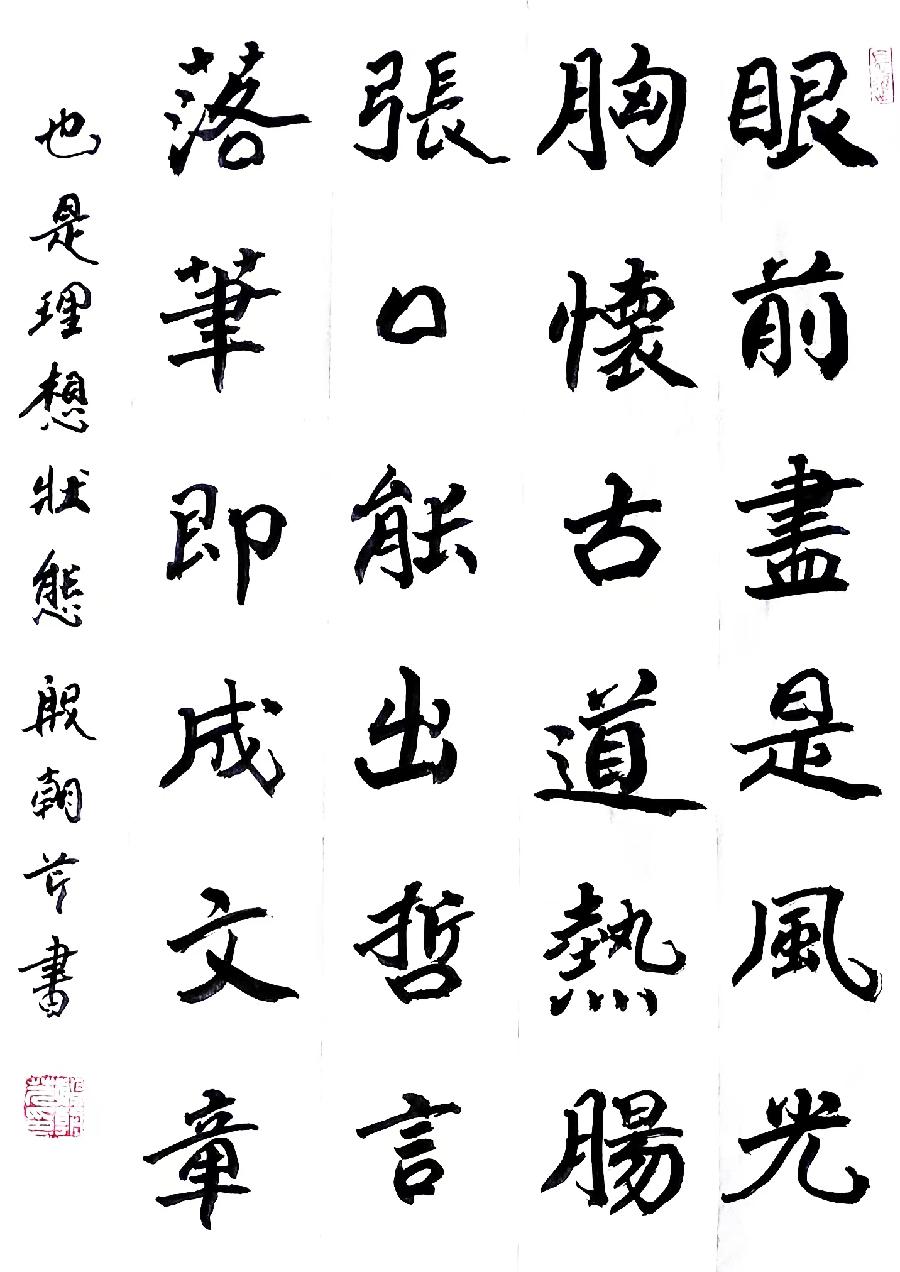 眼前盡是風光
胸懷古道熱腸
張口能出哲言
落筆即成文章
也是理想狀態殷朝芹書